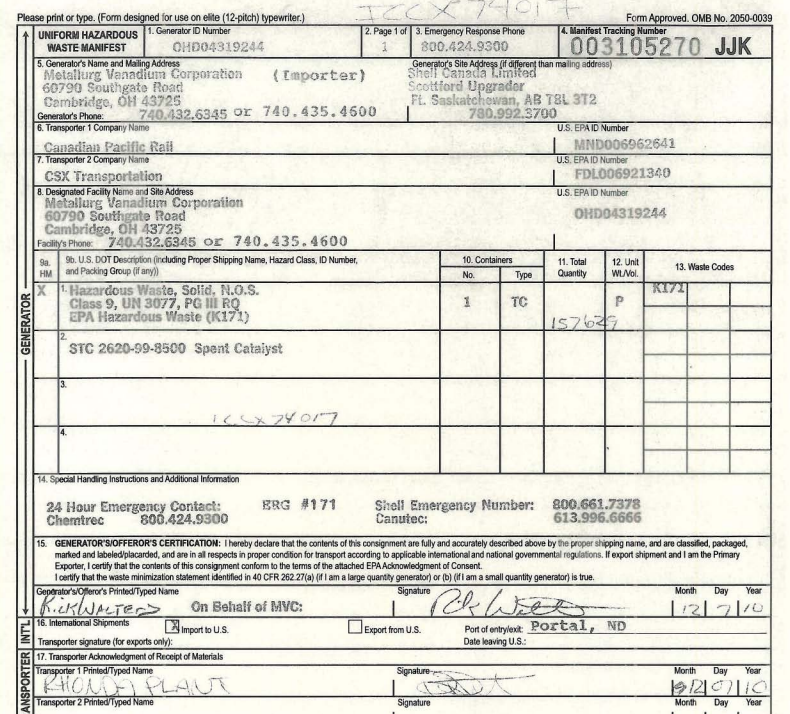 ICCX 74017
Please print or type. (Form designed for use on elite (12-pitch) typewriter.)
Form Approved. OMB No. 2050-0039
UNIFORM HAZARDOUS WASTE MANIFEST
1. Generator ID Number
OHD04319244
2. Page 1 of
1
3. Emergency Response Phone
800.424.9300
4. Manifest Tracking Number
003105270 JJK
5. Generator's Name and Mailing Address
Metallurg Vanadium Corporation (Importer)
60790 Southgate Road
Cambridge, OH 43725
Generator's Phone: 740.432.6345 or 740.435.4600
Generator's Site Address (if different than mailing address)
Shell Canada Limited
Scottford Upgrader
Ft. Saskatchewan, AB T8L 3T2
780.992.3700
6. Transporter 1 Company Name
Canadian Pacific Rail
U.S. EPA ID Number
MND006962641
7. Transporter 2 Company Name
CSX Transportation
U.S. EPA ID Number
FDL006921340
8. Designated Facility Name and Site Address
Metallurg Vanadium Corporation
60790 Southgate Road
Cambridge, OH 43725
Facility's Phone: 740.432.6345 or 740.435.4600
U.S. EPA ID Number
OHD04319244
GENERATOR
9a. HM
9b. U.S. DOT Description (including Proper Shipping Name, Hazard Class, ID Number, and Packing Group (if any))
10. Containers
No.
Type
11. Total Quantity
12. Unit Wt./Vol.
13. Waste Codes
X
1. Hazardous Waste, Solid, N.O.S.
Class 9, UN 3077, PG III RQ
EPA Hazardous Waste (K171)
1
TC
157629
P
K171
2.
STC 2620-99-8500 Spent Catalyst
3.
ICCX 74017
4.
14. Special Handling Instructions and Additional Information
24 Hour Emergency Contact: ERG #171 Shell Emergency Number: 800.661.7378
Chemtrec 800.424.9300 Canutec: 613.996.6666
15. GENERATOR'S/OFFEROR'S CERTIFICATION: I hereby declare that the contents of this consignment are fully and accurately described above by the proper shipping name, and are classified, packaged,
marked and labeled/placarded, and are in all respects in proper condition for transport according to applicable international and national governmental regulations. If export shipment and I am the Primary
Exporter, I certify that the contents of this consignment conform to the terms of the attached EPA Acknowledgment of Consent.
I certify that the waste minimization statement identified in 40 CFR 262.27(a) (if I am a large quantity generator) or (b) (if I am a small quantity generator) is true.
Generator's/Offeror's Printed/Typed Name
Signature
Month Day Year
Rick Walters On Behalf of MVC:
12 7 10
INT'L
16. International Shipments
X Import to U.S.
Export from U.S.
Port of entry/exit: Portal, ND
Transporter signature (for exports only):
Date leaving U.S.:
17. Transporter Acknowledgment of Receipt of Materials
Transporter 1 Printed/Typed Name
Signature
Month Day Year
RHONDA PLANT
12 07 10
Transporter 2 Printed/Typed Name
Signature
Month Day Year